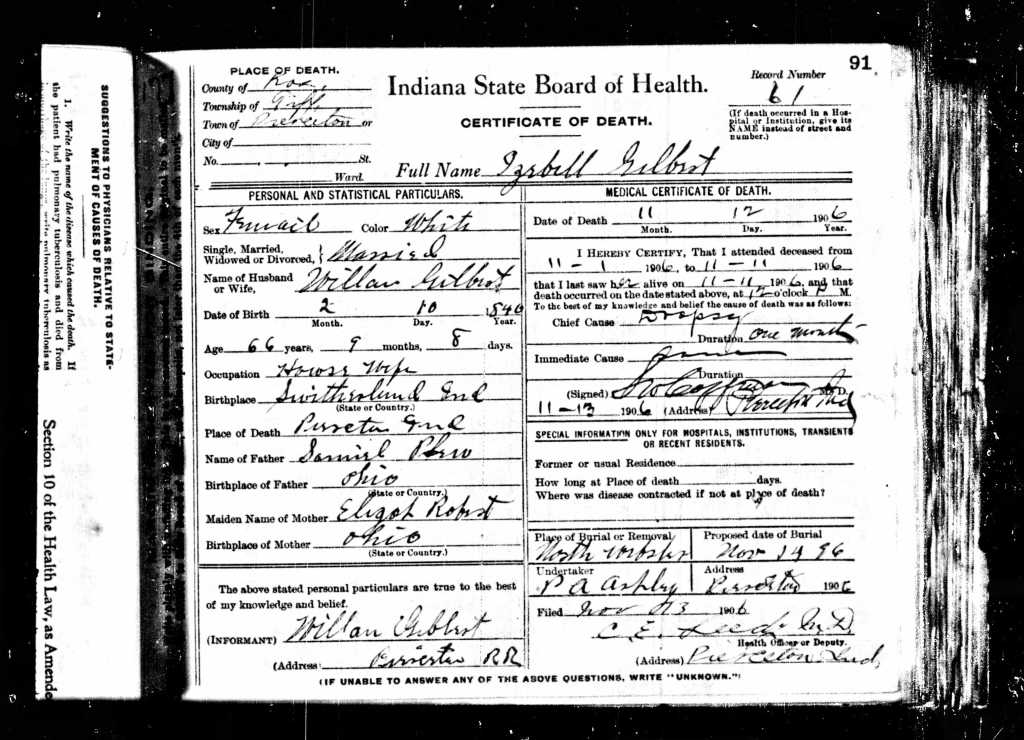 91
PLACE OF DEATH.
County of Kos.
Township of
Town of Pierceton or
City of
No. St.
Ward.
Indiana State Board of Health.
CERTIFICATE OF DEATH.
Record Number
61
(If death occurred in a Hos-
pital or Institution, give its
NAME instead of street and
number.)
Full Name Izebill Gilbert
PERSONAL AND STATISTICAL PARTICULARS.
Sex Femail Color White
Single, Married,
Widowed or Divorced, Married
Name of Husband
or Wife, Willan Gilbert
Date of Birth 2 10 1840
Month. Day. Year.
Age 66 years, 9 months, 8 days.
Occupation Howse Wife
Birthplace Switherlund Ind
(State or Country.)
Place of Death Pirceton Ind
Name of Father Samiel
Birthplace of Father Ohio
(State or Country.)
Maiden Name of Mother Elizabt Robert
Birthplace of Mother Ohio
(State or Country.)
The above stated personal particulars are true to the best
of my knowledge and belief.
(INFORMANT) Willan Gilbert
(Address Pirceton RR
MEDICAL CERTIFICATE OF DEATH.
Date of Death 11 12 1906
Month. Day. Year.
I HEREBY CERTIFY, That I attended deceased from
11 - 1 1906, to 11 - 11 1906
that I last saw her alive on 11-11 1906, and that
death occurred on the date stated above, at 12 o'clock P M.
To the best of my knowledge and belief the cause of death was as follows:
Chief Cause Dropsy
Duration one month
Immediate Cause Same
Duration
(Signed) Coffman M.D.
11-13 1906 (Address) Ind
SPECIAL INFORMATION ONLY FOR HOSPITALS, INSTITUTIONS, TRANSIENTS
OR RECENT RESIDENTS.
Former or usual Residence
How long at Place of death days.
Where was disease contracted if not at place of death?
Place of Burial or Removal
North Webster
Proposed date of Burial
Nov 14 96
Undertaker
P A Ashley
Address
Pirceton 1906
Filed Nov 13 1906
C. E. M.D.
Health Officer or Deputy.
(Address) Pierceton Ind,
(IF UNABLE TO ANSWER ANY OF THE ABOVE QUESTIONS, WRITE "UNKNOWN.")
SUGGESTIONS TO PHYSICIANS RELATIVE TO STATE-
MENT OF CAUSES OF DEATH.
1. Write the name of the disease which caused the death. If
the patient had pulmonary tuberculosis and died from
Section 10 of the Health Law, as Amende